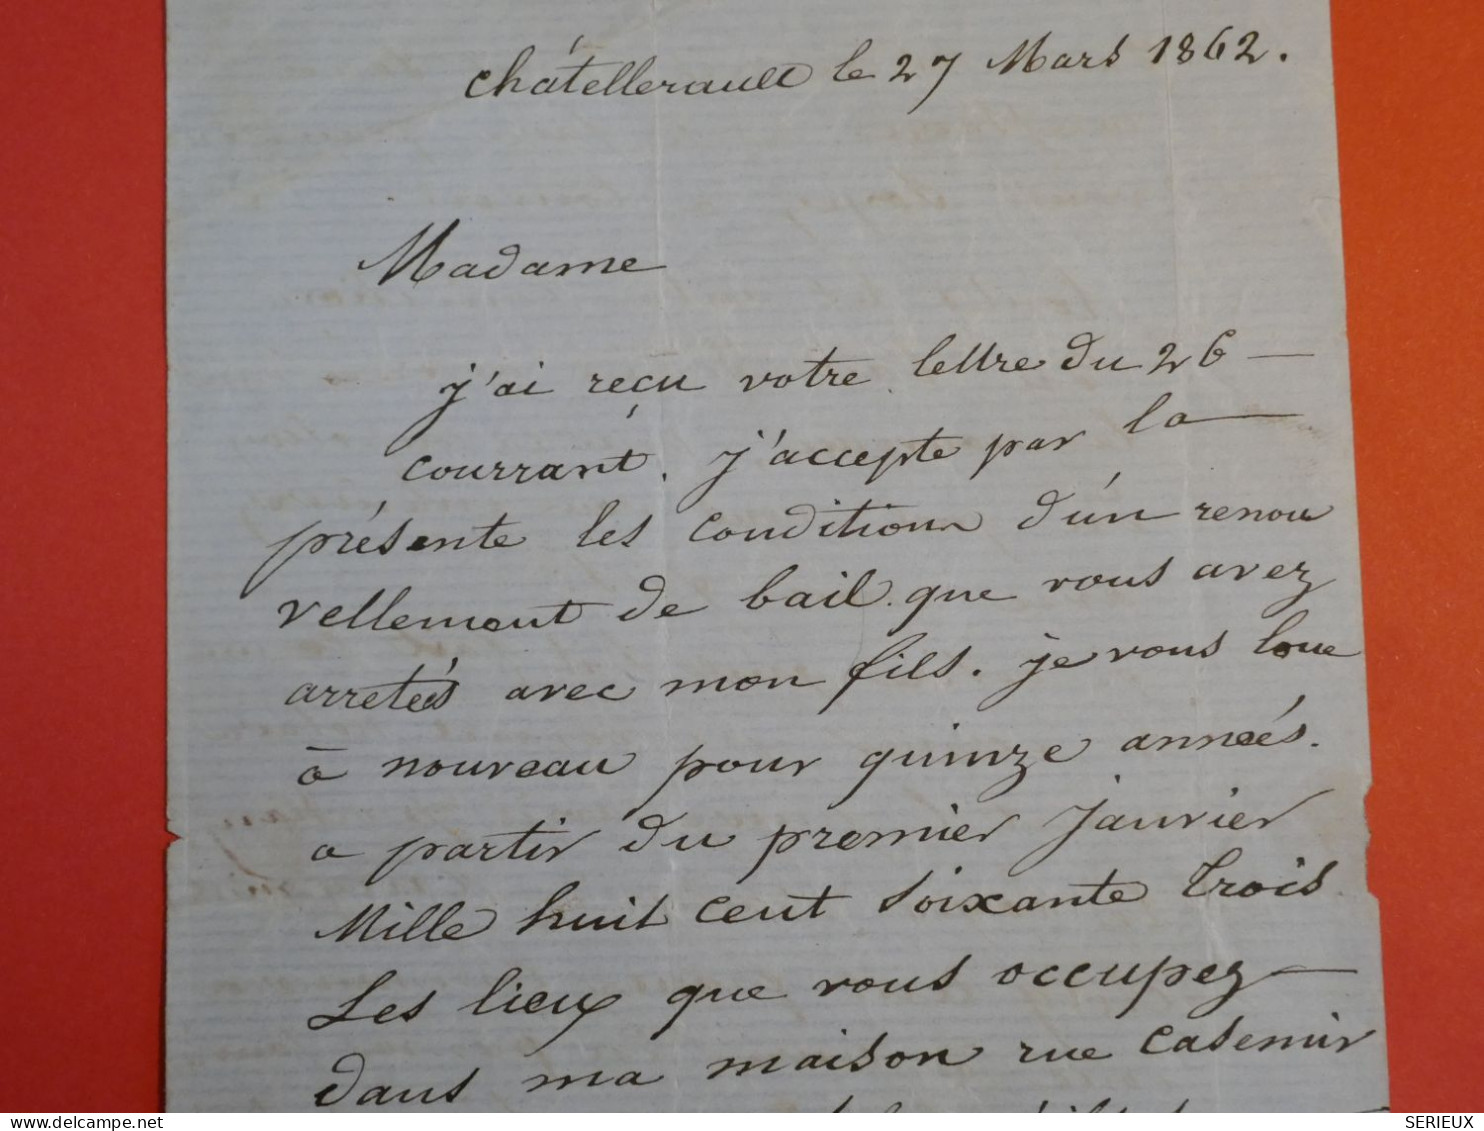 Châtellerault le 27 Mars 1862.
Madame
j'ai reçu votre lettre du 26 —
courrant. j'accepte par la —
présente les condition d'un renou
vellement de bail que vous avez
arretés avec mon fils. je vous loue
à nouveau pour quinze années.
a partir du premier janvier
Mille huit cent soixante trois
Les lieux que vous occupez —
dans ma maison rue Casemir
SERIEUX